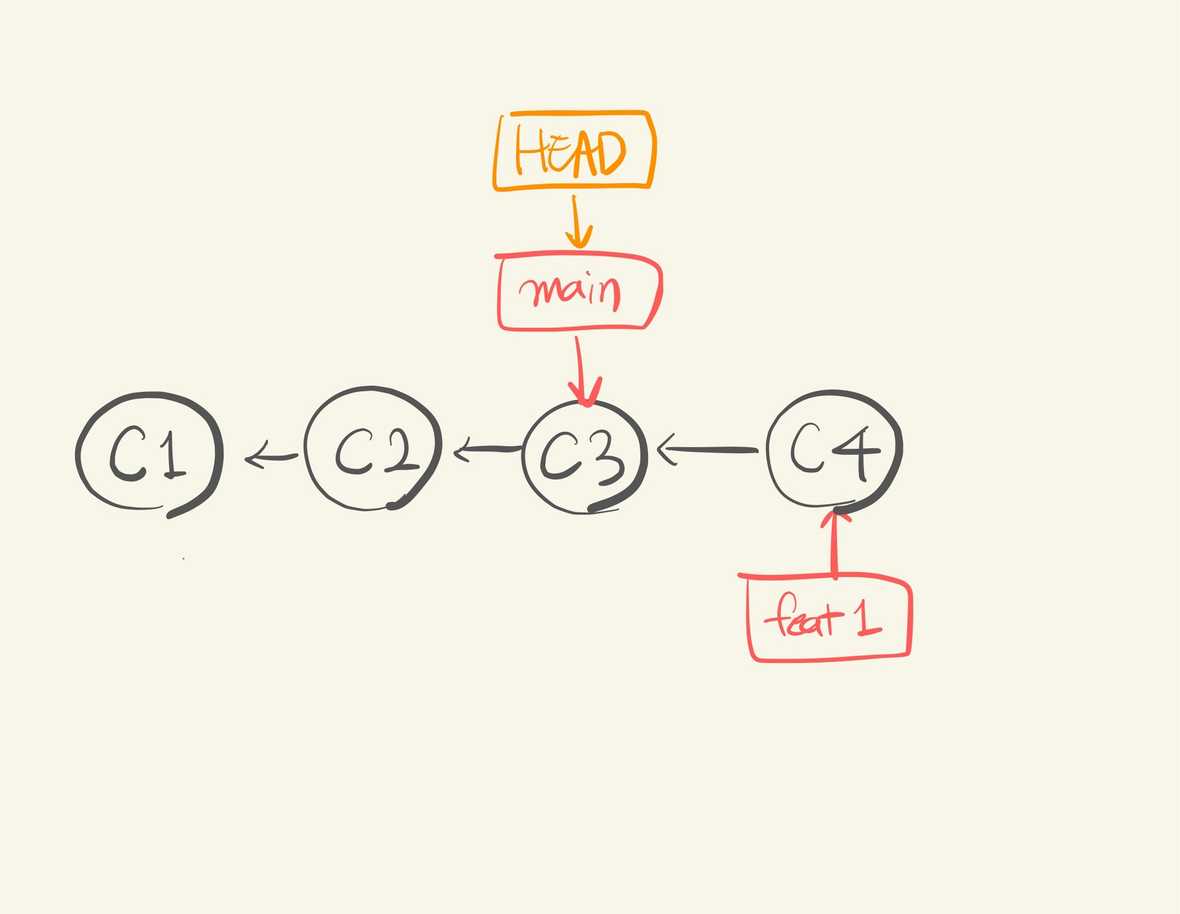 HEAD
main
C1
C2
C3
C4
feat 1